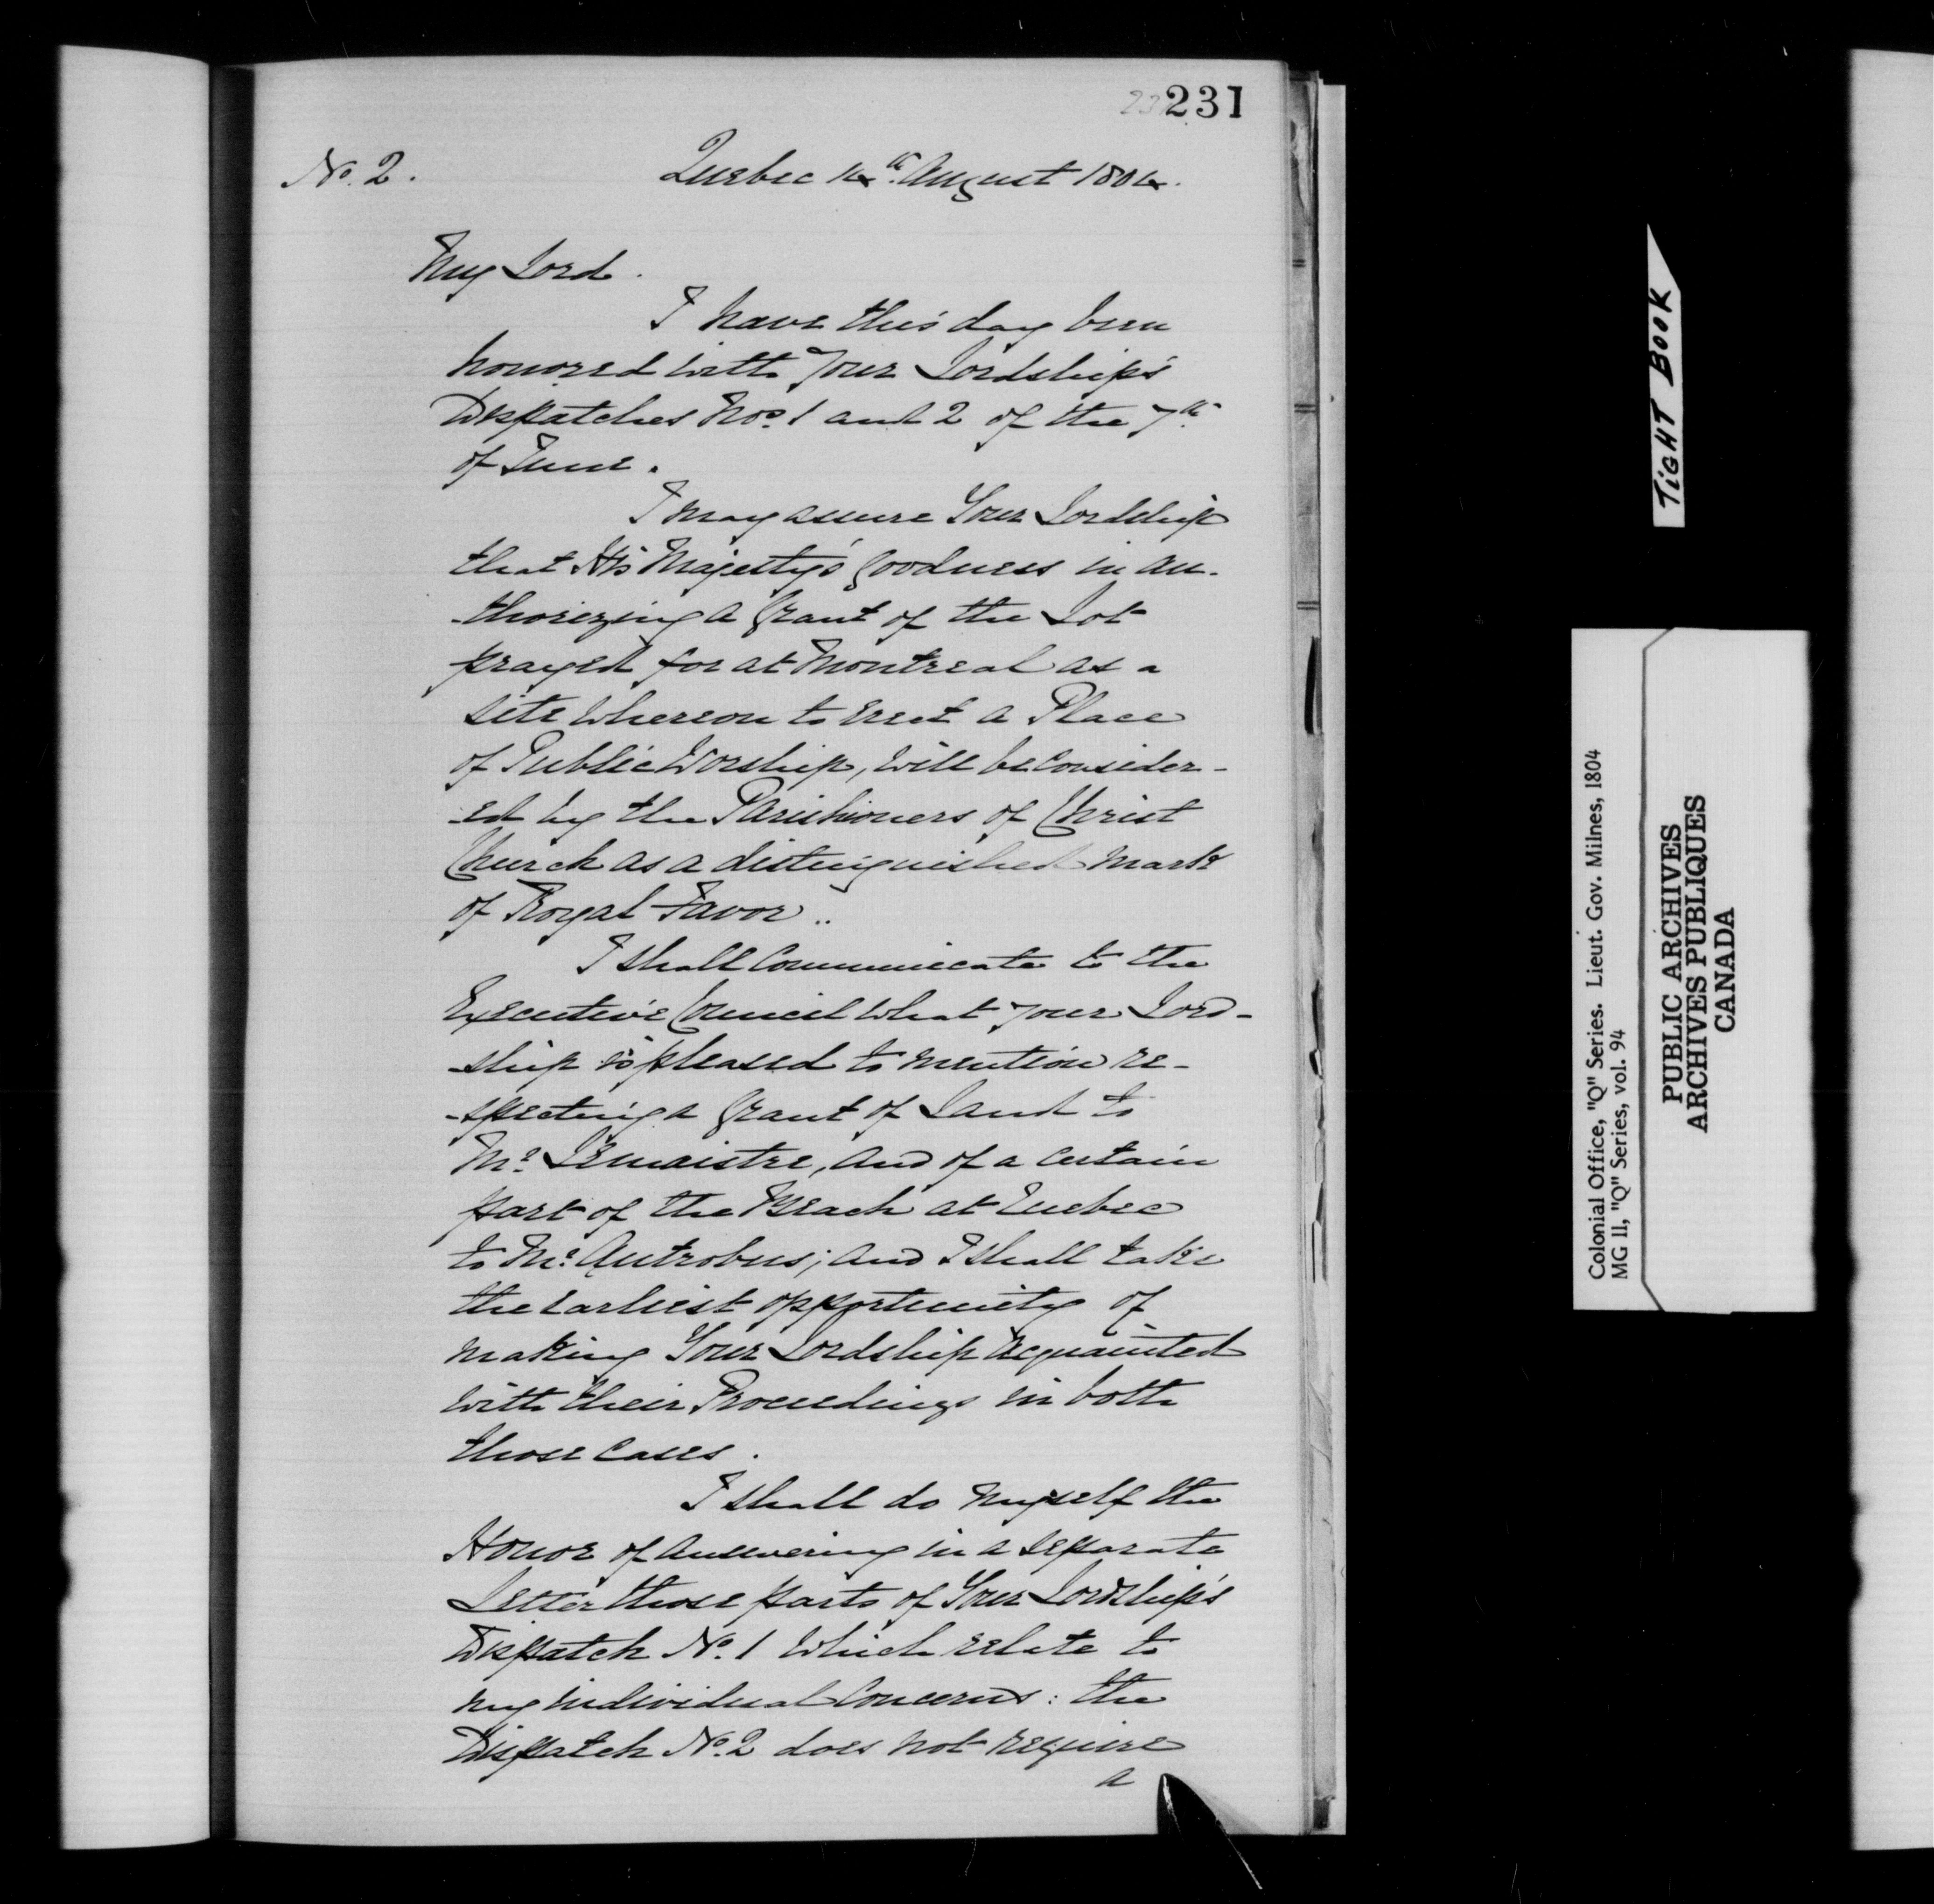 231
231
No. 2.
Quebec 4th August 1804.
My Lord.
I have this day been
honored with your Lordship's
Dispatches Nos. 1 and 2 of the 7th
of June.
I may assure Your Lordship
that His Majesty's goodness in au-
-thorizing a Grant of the Lot
prayed for at Montreal as a
site whereon to erect a Place
of Public Worship, will be consider-
-ed by the Parishioners of Christ
Church as a distinguished mark
of Royal Favor..
I shall Communicate to the
Executive Council what your Lord-
-ship is pleased to mention re-
-specting a Grant of Land to
Mr. Lemaistre, and of a certain
part of the Beach at Quebec
to Mr. Antrobus; and I shall take
the earliest opportunity of
making Your Lordship acquainted
with their Proceedings in both
those cases.
I shall do myself the
Honor of answering in a separate
Letter those parts of Your Lordship's
Dispatch No. 1 which relate to
my individual Concerns: the
Dispatch No. 2 does not require
a
TIGHT BOOK
Colonial Office, "Q" Series. Lieut. Gov. Milnes, 1804
MG 11, "Q" Series, vol. 94
PUBLIC ARCHIVES
ARCHIVES PUBLIQUES
CANADA